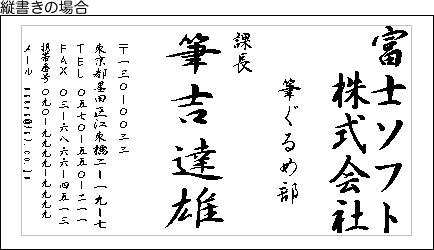 縦書きの場合
富士ソフト
株式会社
筆ぐるめ部
課長
筆吉達雄
〒一三〇ー〇〇二二
東京都墨田区江東橋二ー一九ー七
TEL 〇五七〇ー五五〇ー二一一
FAX 〇三ー六八六六ー四五一三
携帯番号 〇九〇ー九九九九ー九九九九